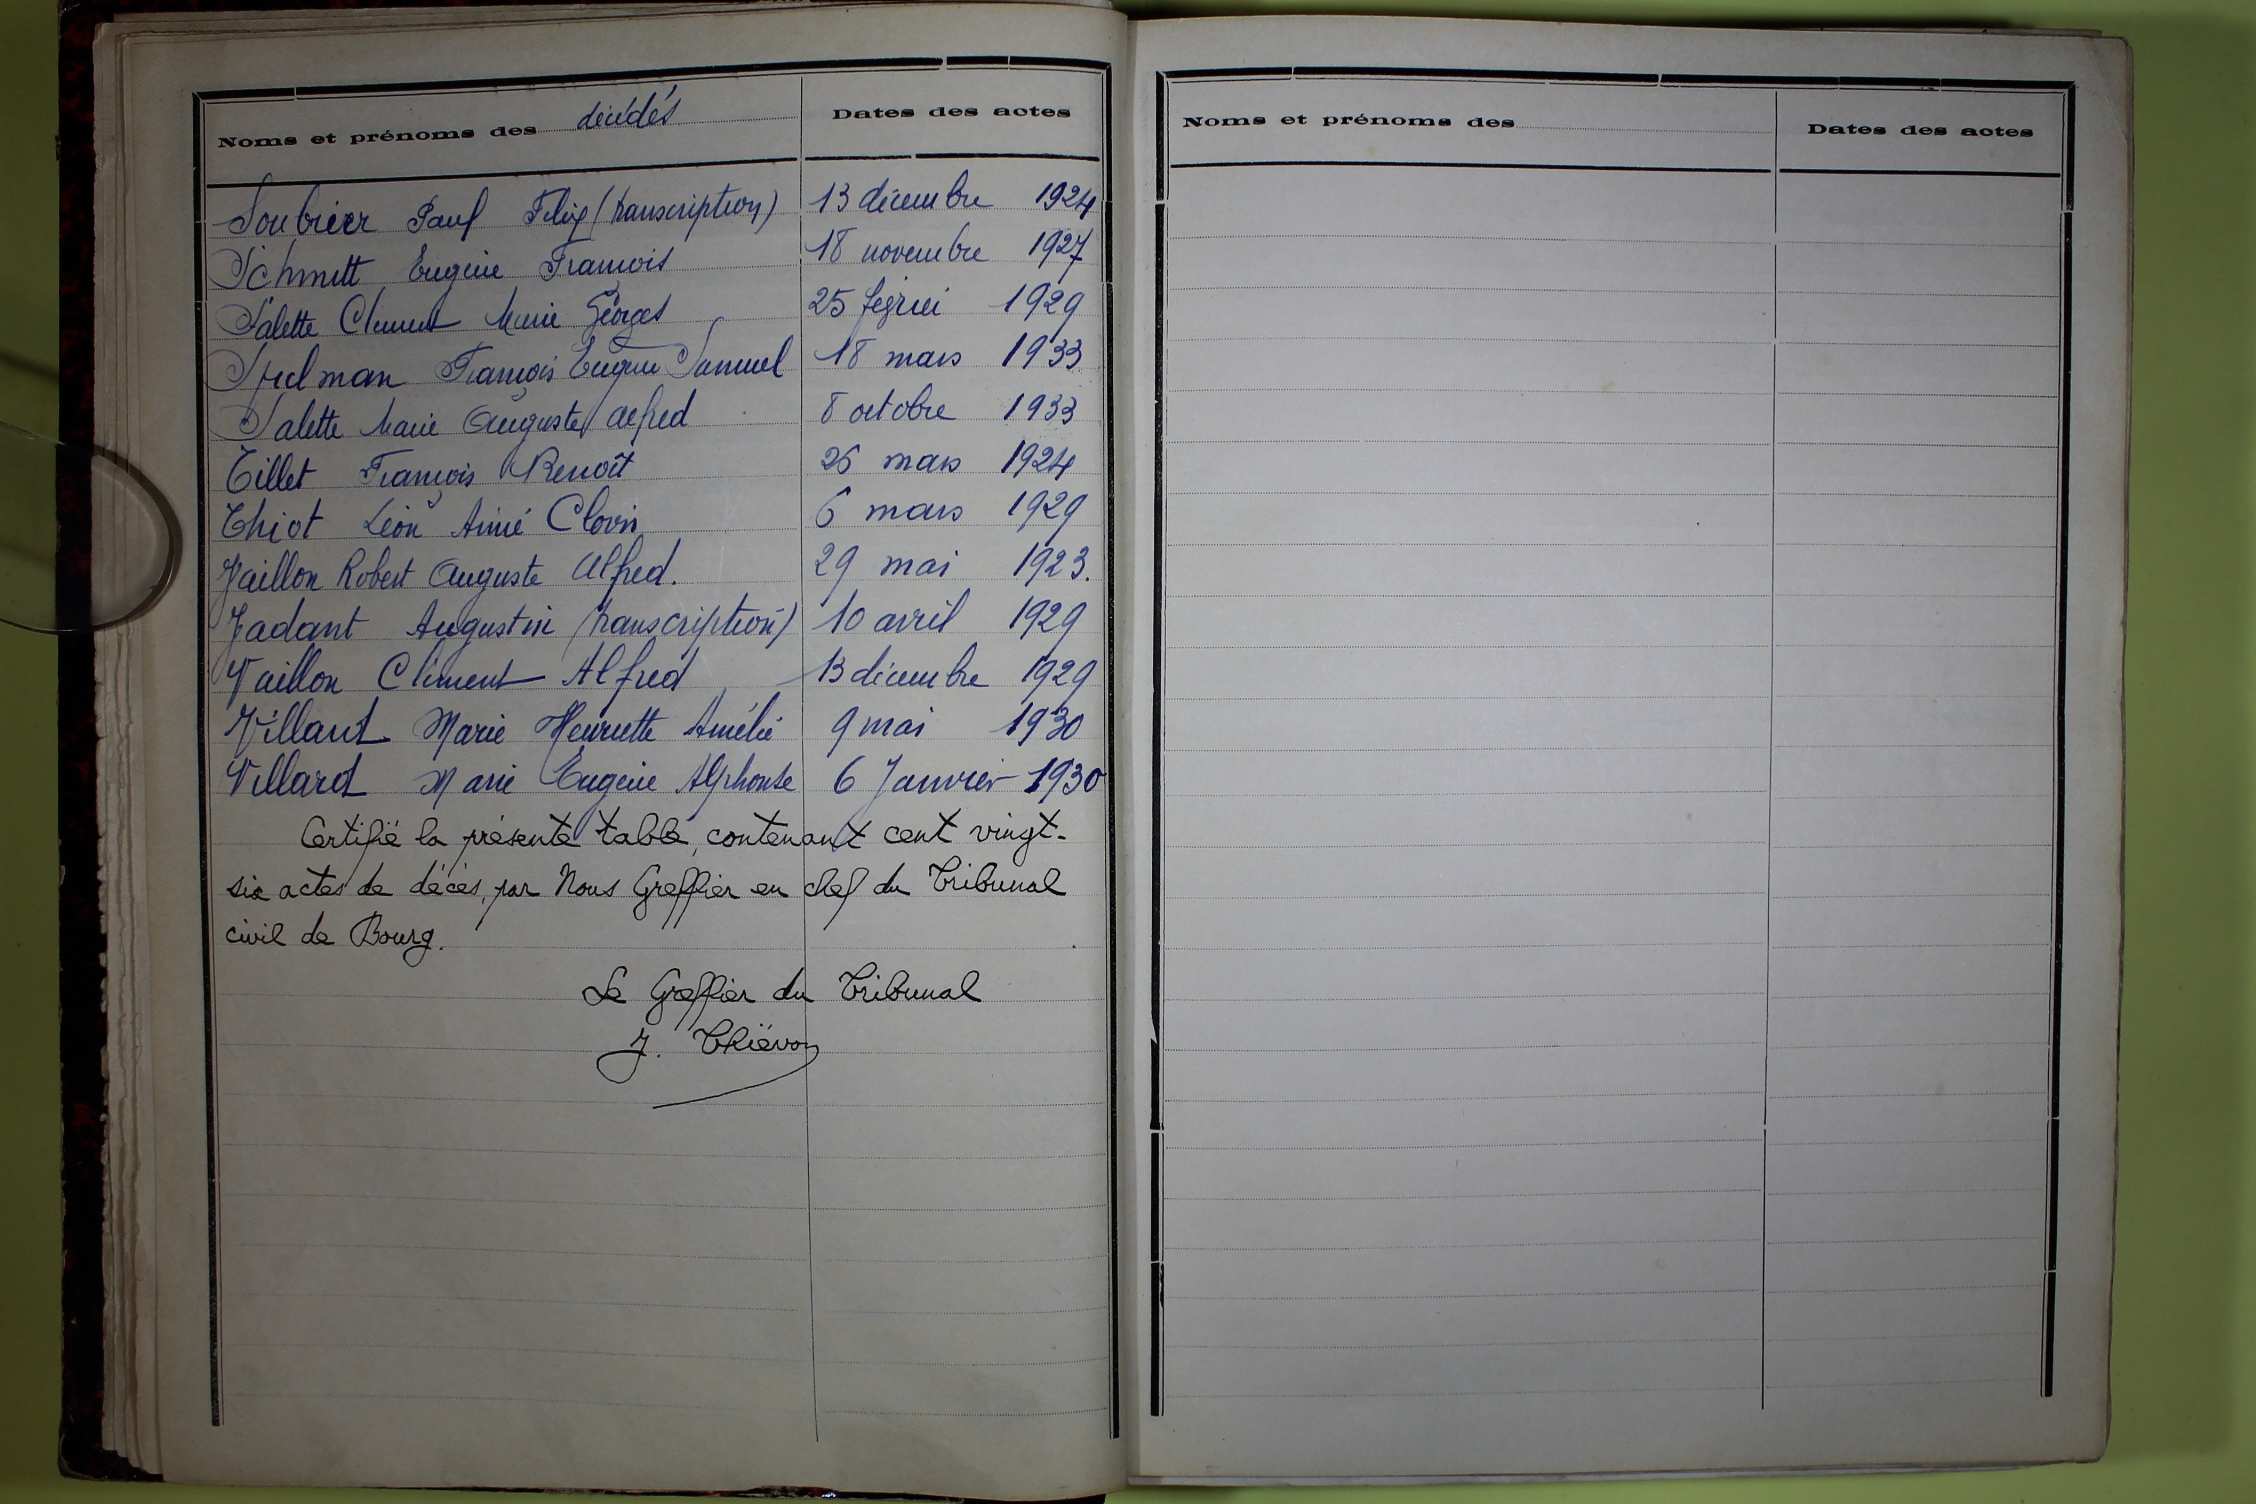 Noms et prénoms des décédés Dates des actes
Soubrier Paul Félix (transcription) 13 décembre 1924
Schmitt Eugène François 18 novembre 1927
Salette Clément Marie Georges 25 février 1929
Spelman François Eugène Samuel 18 mars 1933
Salette Marie Auguste Alfred 8 octobre 1933
Tillet François Benoît 26 mars 1924
Thiot Léon Aimé Clovis 6 mars 1929
Vaillon Robert Auguste Alfred. 29 mai 1923.
Vadant Augustin (transcription) 10 avril 1929
Vaillon Clément Alfred 13 décembre 1929
Villard Marie Henriette Amélie 9 mai 1930
Villard Marie Eugène Alphonse 6 Janvier 1930
Certifié la présente table, contenant cent vingt-
six actes de décès, par Nous Greffier en chef du Tribunal
civil de Bourg.
Le Greffier du Tribunal
J. Thiévon
Noms et prénoms des Dates des actes